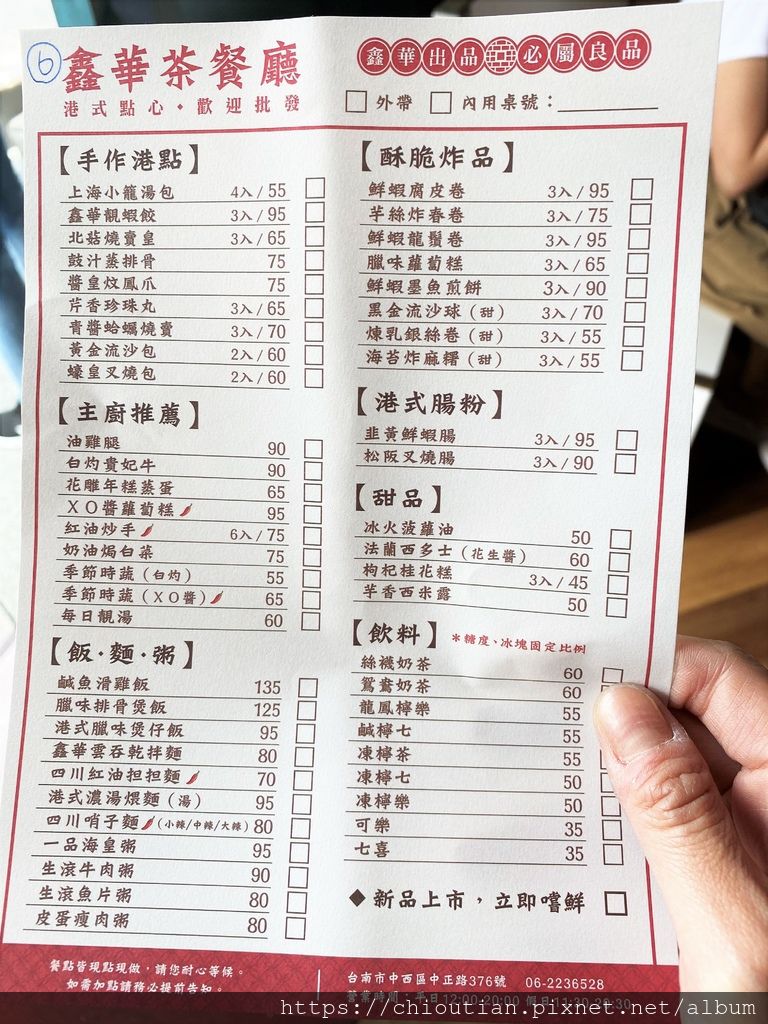 6
鑫華茶餐廳
港式點心・歡迎批發
鑫華出品 必屬良品
□外帶 □內用桌號：
【手作港點】
上海小籠湯包 4入/55
鑫華靚蝦餃 3入/95
北菇燒賣皇 3入/65
豉汁蒸排骨 75
醬皇炆鳳爪 75
芹香珍珠丸 3入/65
青醬蛤蠣燒賣 3入/70
黃金流沙包 2入/60
蠔皇叉燒包 2入/60
【主廚推薦】
油雞腿 90
白灼貴妃牛 90
花雕年糕蒸蛋 65
XO醬蘿蔔糕 95
紅油炒手 6入/75
奶油焗白菜 75
季節時蔬（白灼） 55
季節時蔬（XO醬） 65
每日靚湯 60
【飯・麵・粥】
鹹魚滑雞飯 135
臘味排骨煲飯 125
港式臘味煲仔飯 95
鑫華雲吞乾拌麵 80
四川紅油担担麵 70
港式濃湯煨麵（湯） 95
四川哨子麵（小辣/中辣/大辣） 80
一品海皇粥 95
生滾牛肉粥 90
生滾魚片粥 80
皮蛋瘦肉粥 80
【酥脆炸品】
鮮蝦腐皮卷 3入/95
芋絲炸春卷 3入/75
鮮蝦龍鬚卷 3入/95
臘味蘿蔔糕 3入/65
鮮蝦墨魚煎餅 3入/90
黑金流沙球（甜） 3入/70
煉乳銀絲卷（甜） 3入/55
海苔炸麻糬（甜） 3入/55
【港式腸粉】
韭黃鮮蝦腸 3入/95
松阪叉燒腸 3入/90
【甜品】
冰火菠蘿油 50
法蘭西多士（花生醬） 60
枸杞桂花糕 3入/45
芋香西米露 50
【飲料】 *糖度、冰塊固定比例
絲襪奶茶 60
鴛鴦奶茶 60
龍鳳檸樂 55
鹹檸七 55
凍檸茶 55
凍檸七 50
凍檸樂 50
可樂 35
七喜 35
◆新品上市，立即嚐鮮
餐點皆現點現做，請您耐心等候。
如需加點請務必提前告知。
台南市中西區中正路376號 06-2236528
營業時間：平日12:00-20:00 假日11:30-20:30
https://chioutian.pixnet.net/album